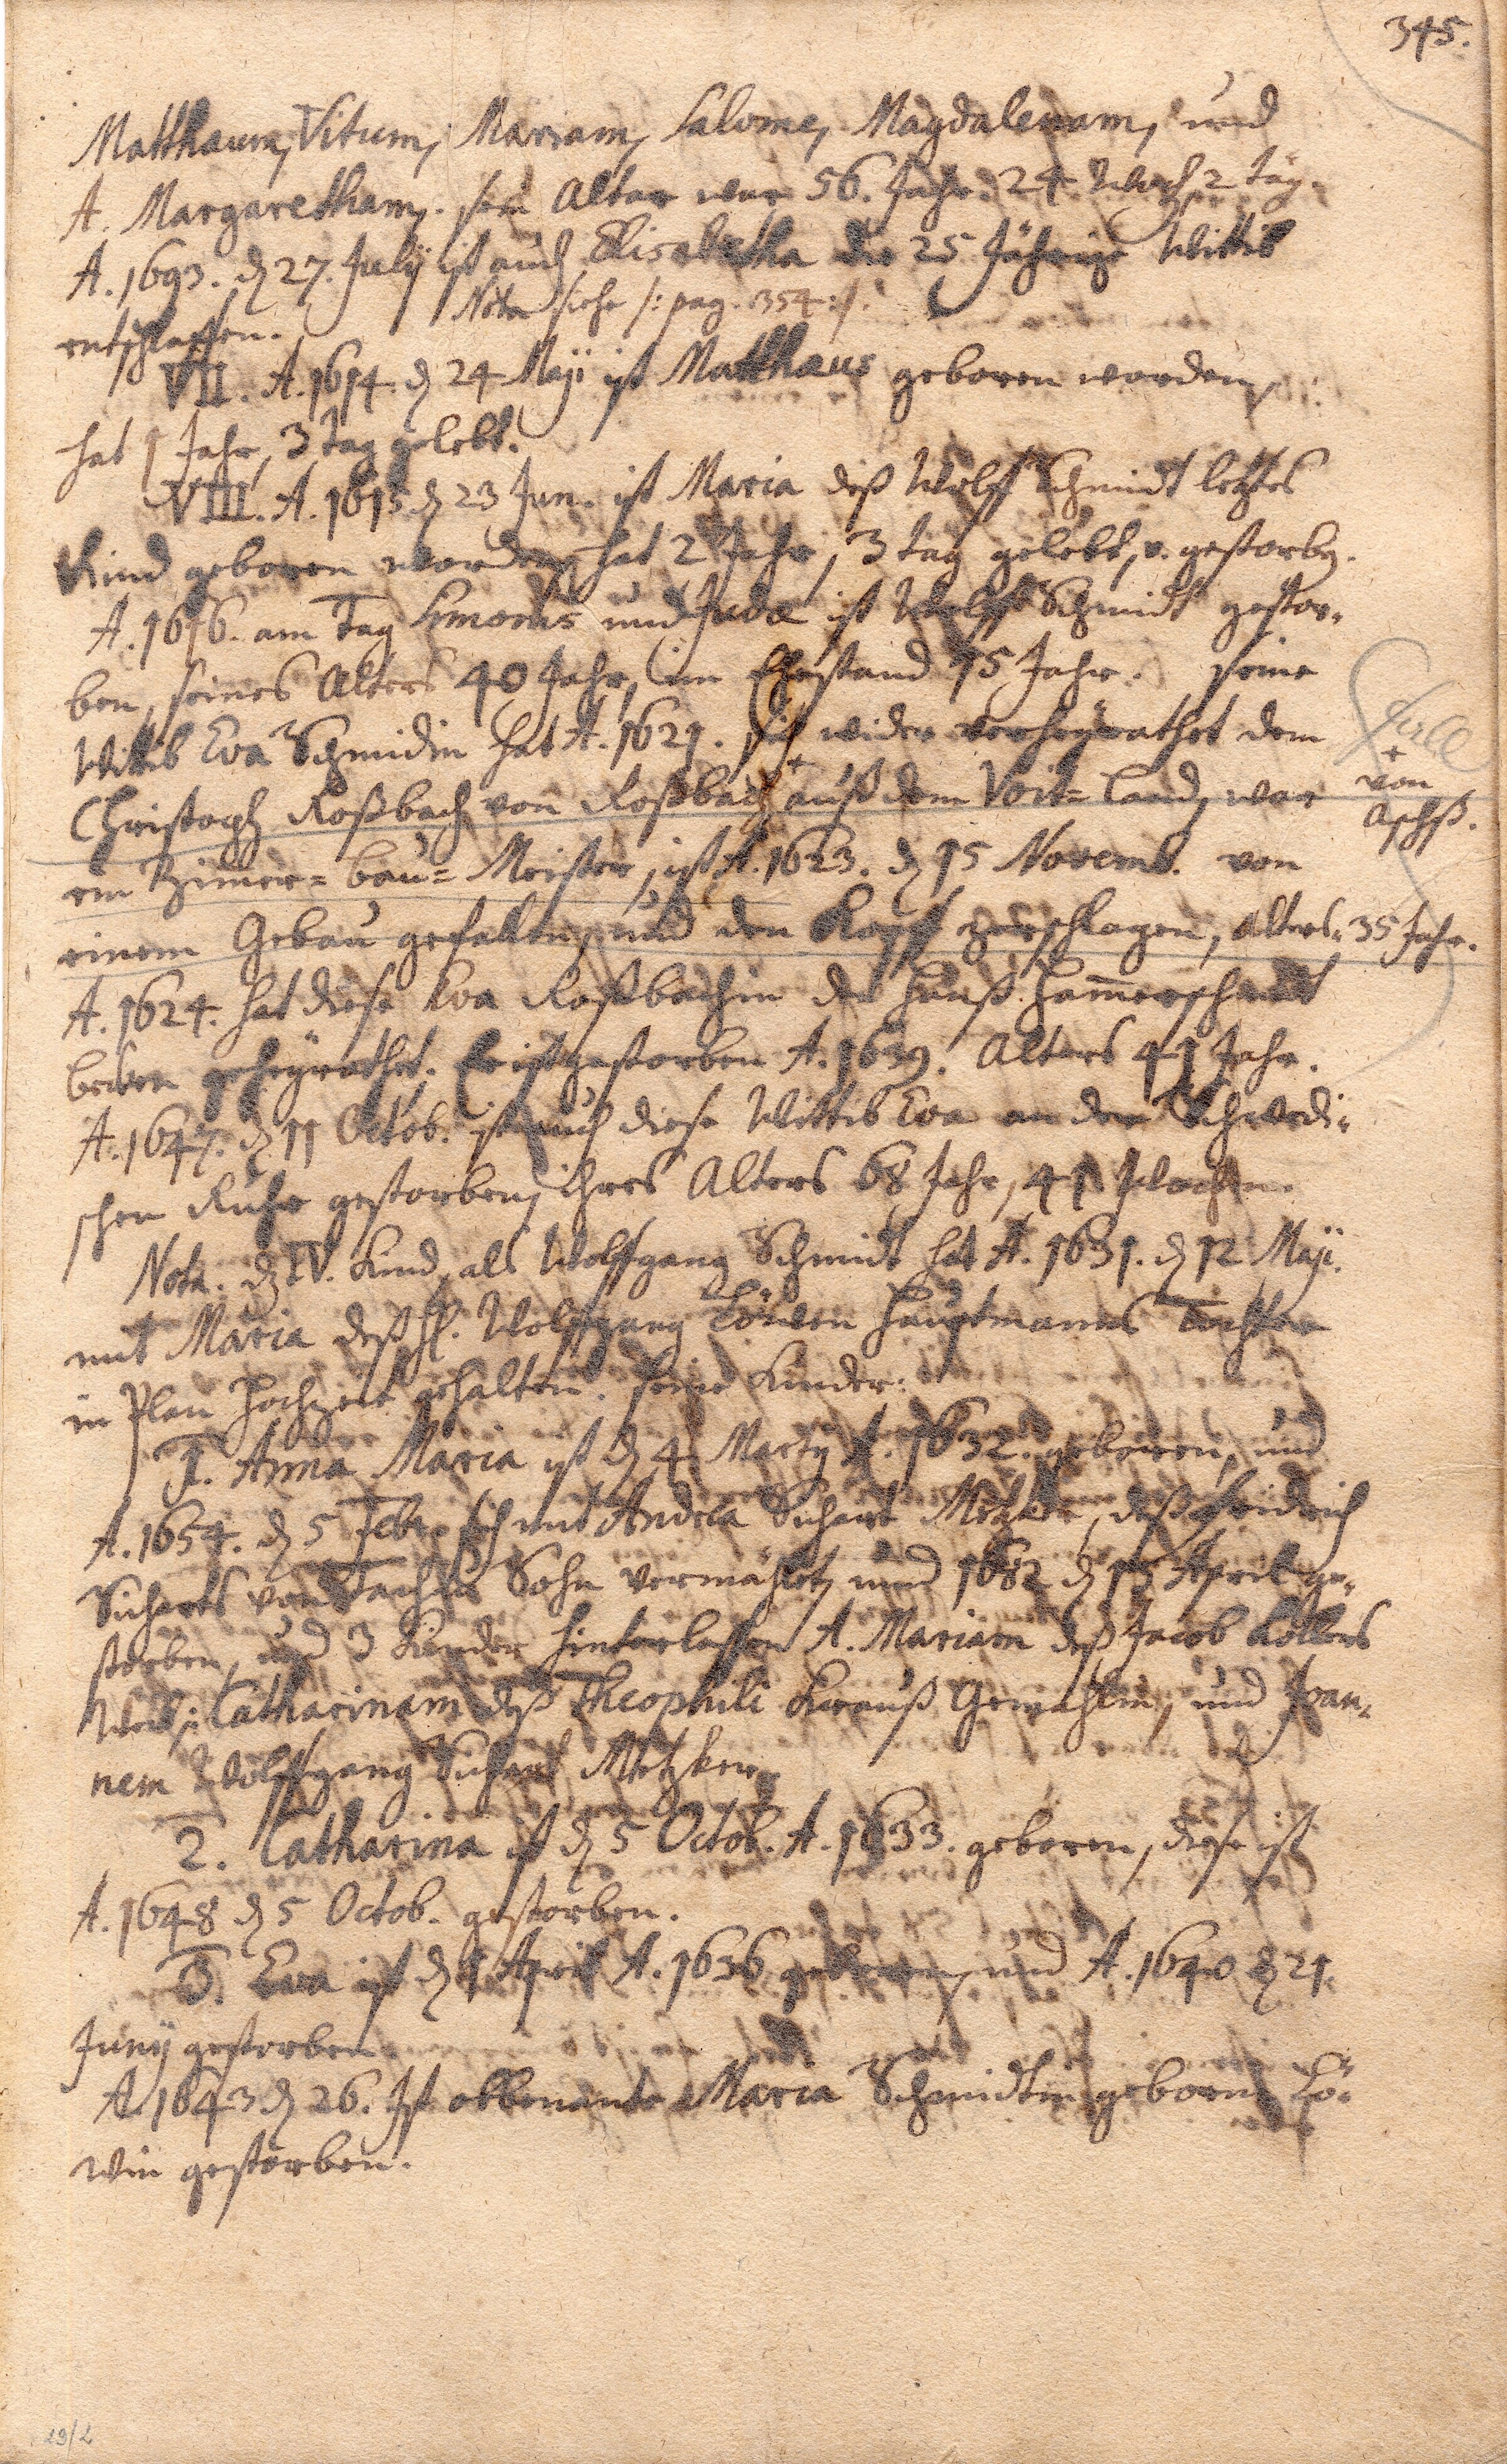 345.
Matthæum, Vitum, Mariam, Salome, Magdalenam, und
A. Margaretham. sein Alter war 56. Jahr. 24 Woch 2 täg.
A. 1693. d 27. Julij ist auch Elisabetha die 25 Jährige Wittib
entschlaffen. Nota siehe /: pag. 354 :/.
VII. A. 1614. d 24 Maji ist Matthæus geboren worden,
hat 1 Jahr, 3 tag gelebt.
VIII. A. 1615 d 23 Jun. ist Maria deß Wolff Schmidt letztes
Kind geboren worden, hat 2 Jahr, 3 tag gelebt, v. gestorbn.
A. 1616. am Tag Simonis und Judæ ist Wolff Schmidt gestor-
ben, seines Alters 40 Jahr, im Ehestand 15 Jahr. seine
Wittib Eva Schmidin hat A. 1621. sich wider verheyrathet dem
Christoph Roßbach von Roßbach + auß dem Voit=land, war
+ von
Aschß.
ein Zimmer=bau=Meister, ist A. 1623. d 15 Novemb. von
einem Gebäu gefallen, und den Kopf zerschlagen, Alters 35 Jahr.
A. 1624. hat diese Eva Roßbachin den Hanß Hammerschmidt
geheyrathet. Er ist gestorben A. 1639. Alters 41 Jahr.
A. 1647. d 11 Octob. ist auch diese Wittib Eva an der Schwedi-
schen Ruhr gestorben, ihres Alters 68 Jahr, 41 Wochen.
Nota. d IV. Kind, als Wolffgang Schmidt hat A. 1631. d 12 Maji.
mit Maria deß H. Wolffgang Löwen Hauptmanns Tochter
in Plan Hochzeit gehalten. seine Kinder:
1. Anna Maria ist d 4 Martij A. 1632. geboren, und
A. 1654. d 5 Febr. sich mit Andrea Sichart Metzker, deß Fridrich
Sicharts von Sohn vermählet, und 1682 d 15 April ge-
storben, und 3 Kinder hinterlassen A. Mariam deß Jacob
Weib, Catharinam deß Theophili Krauß Gemahlin, und Joan-
nem Wolffgang Sichart Metzker.
2. Catharina ist d 5 Octob. A. 1633. geboren, diese ist
A. 1648 d 5 Octob. gestorben.
3. Eva ist d 1 April A. 1636 geboren, und A. 1640 d 21.
Junij gestorben.
A. 1643 d 26. Ist obbenante Maria Schmidtin geborne Lö-
win gestorben.
29/2